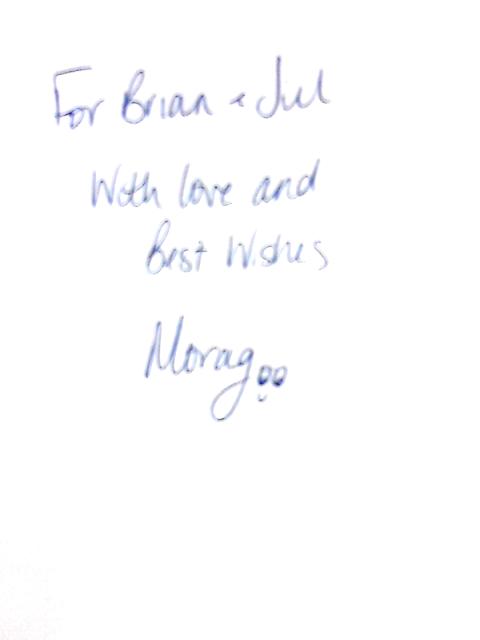 For Brian & Jill
With love and
Best Wishes
Morag